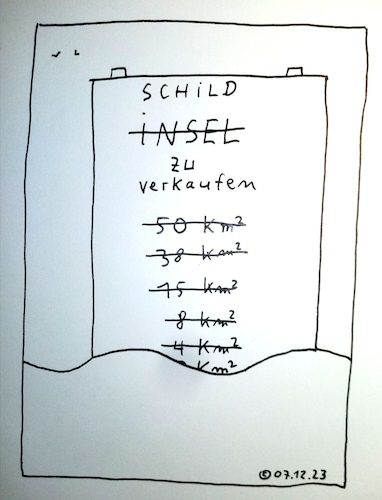 SCHiLD
iNSEL
zu
verkaufen
50 Km²
38 Km²
15 Km²
8 Km²
4 Km²
Km²
©07.12.23